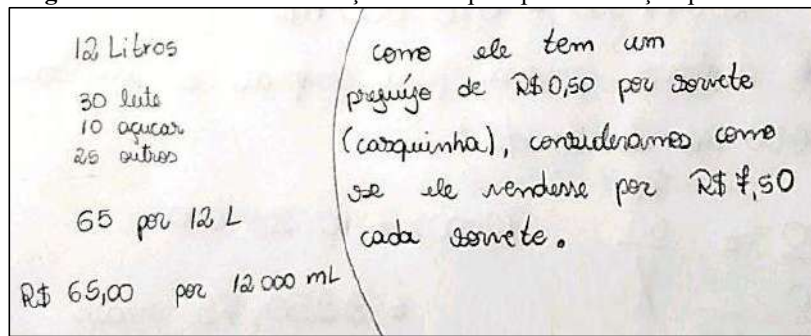 12 Litros
30 leite
10 açucar
25 outros
65 por 12 L
R$ 65,00 por 12 000 mL
como ele tem um
prejuízo de R$ 0,50 por sorvete
(casquinha), consideramos como
se ele vendesse por R$ 7,50
cada sorvete.